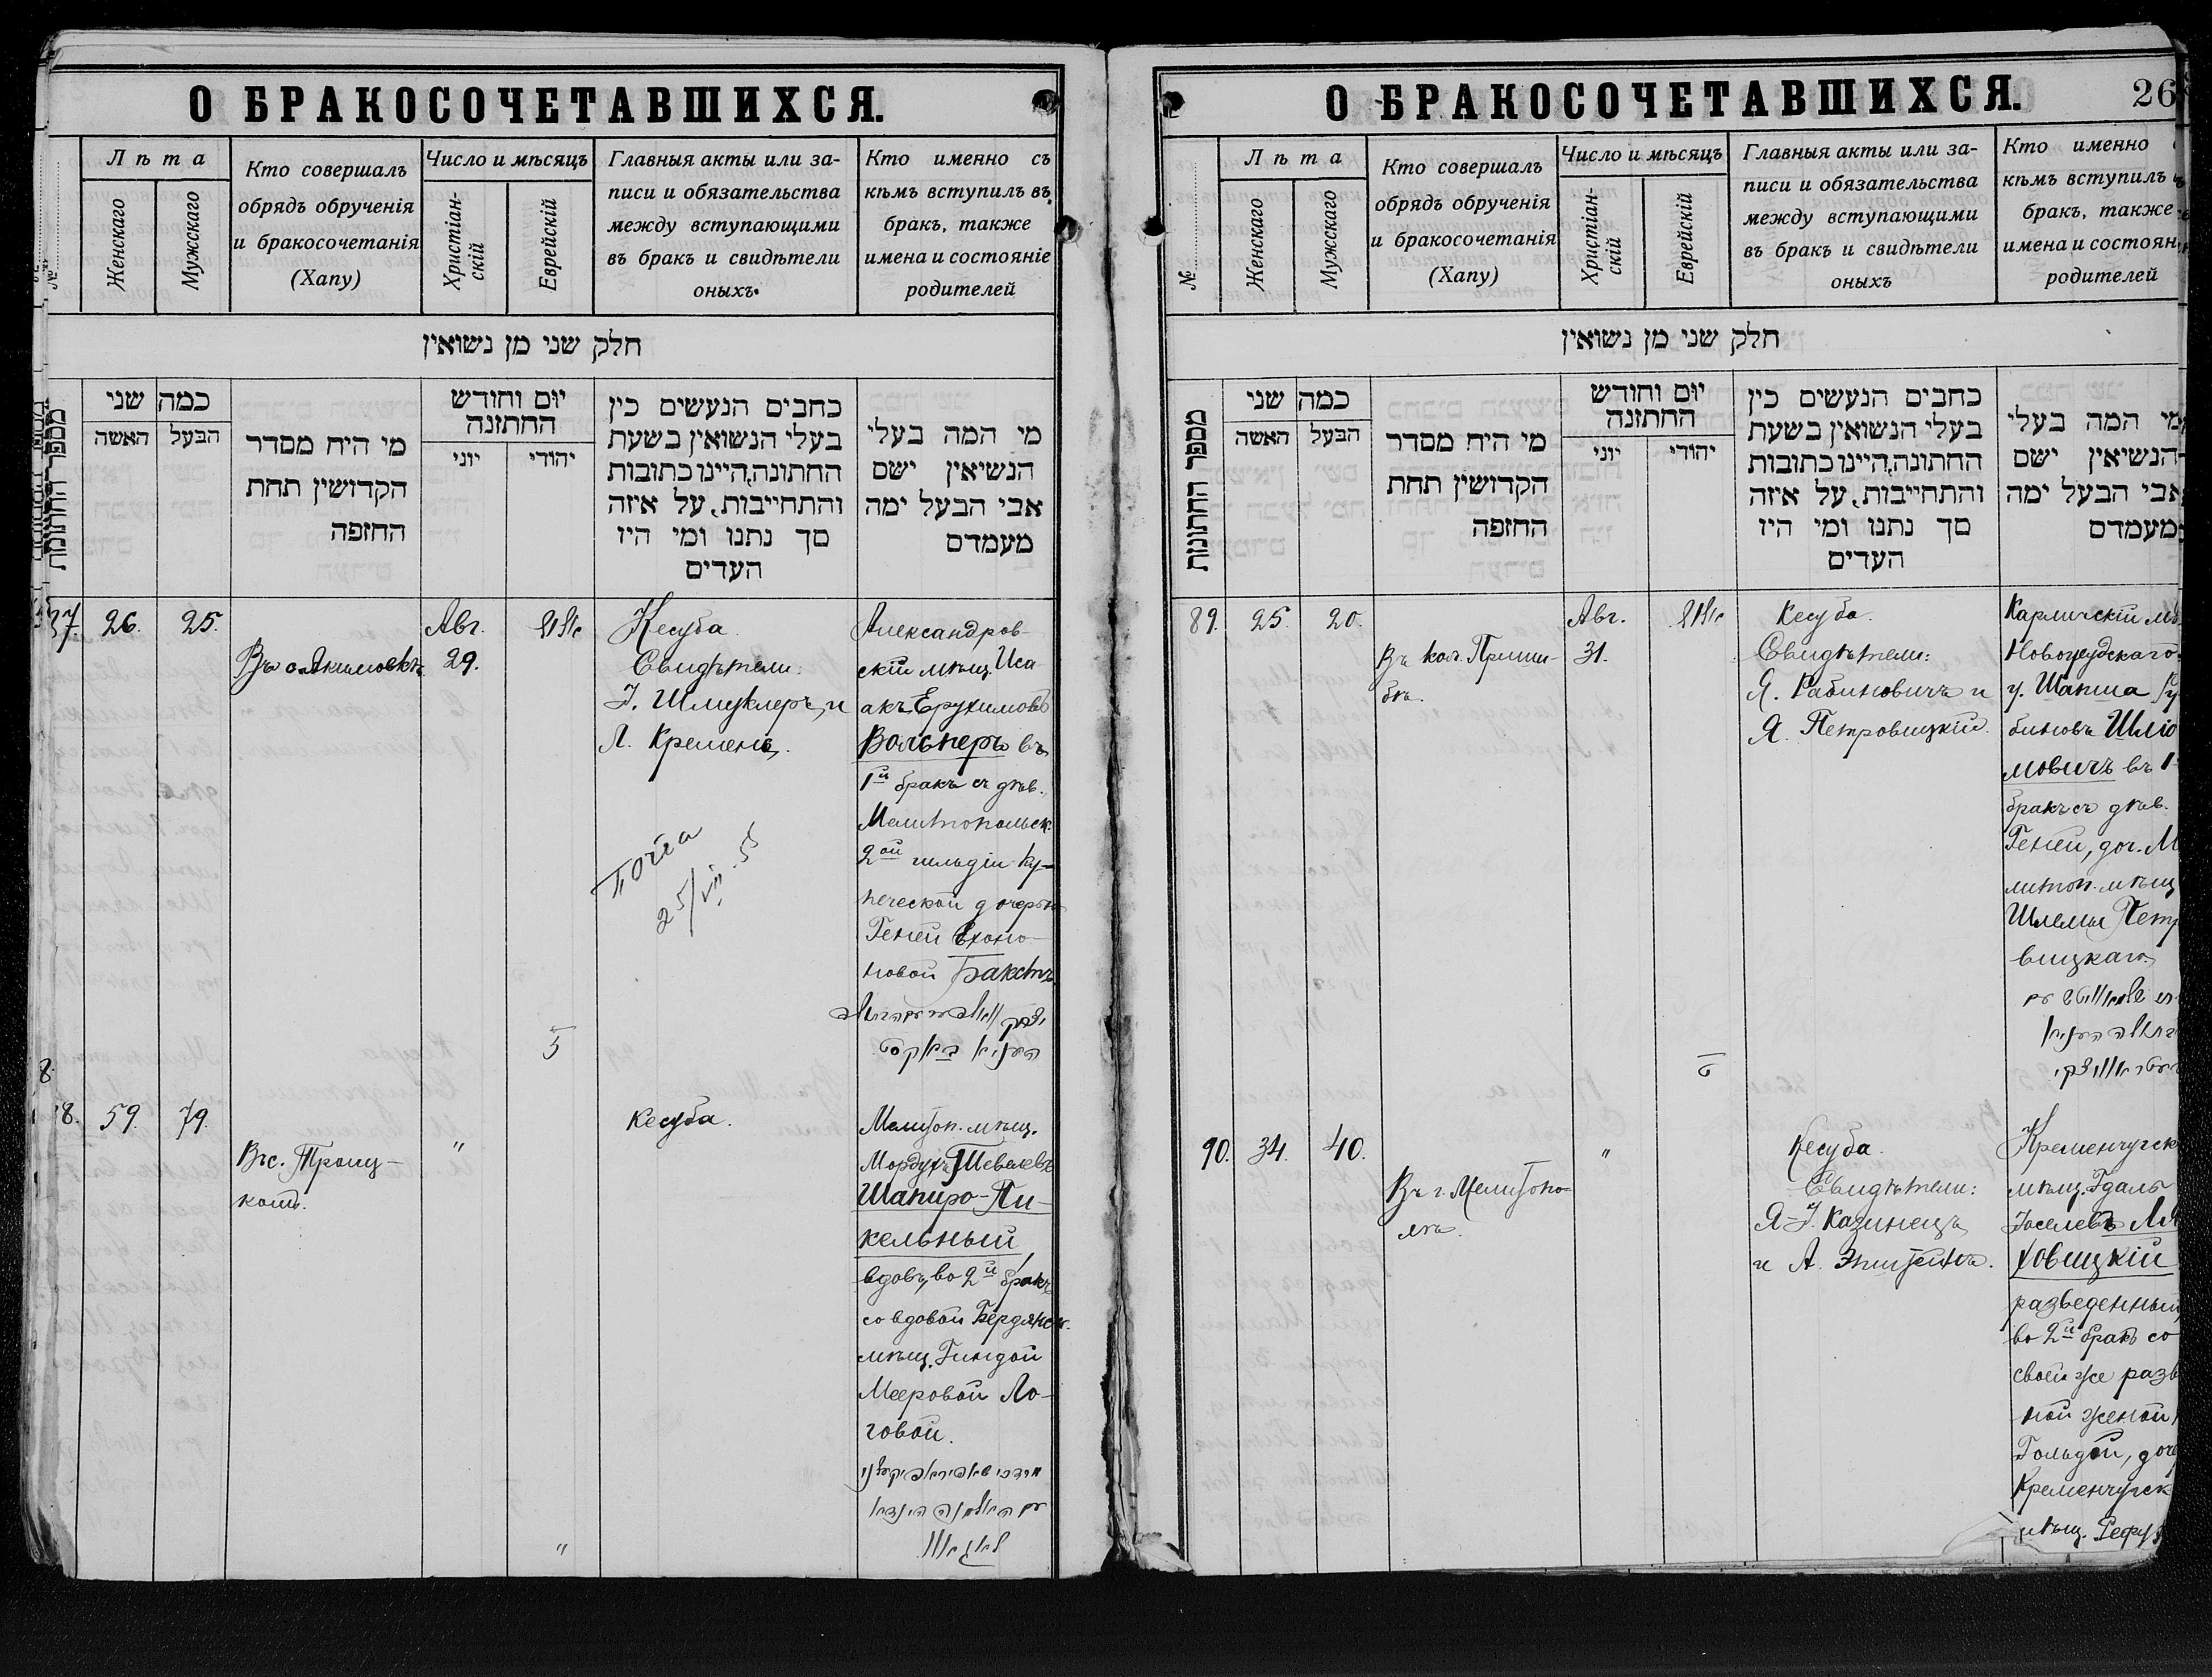 О БРАКОСОЧЕТАВШИХСЯ.
№
Лѣта
Женскаго
Мужскаго
Кто совершалъ
обрядъ обрученія
и бракосочетанія
(Хапу)
Число и мѣсяцъ
Христіан-
скій
Еврейскій
Главныя акты или за-
писи и обязательства
между вступающими
въ бракъ и свидѣтели
оныхъ.
Кто именно съ
кѣмъ вступилъ въ
бракъ, также
имена и состояніе
родителей
חלק שני מן נשואין
מספר החתונות
כמה שני
האשה
הבעל
מי היח מסדר
הקדושין תחת
החזפה
יום וחודש
החתזנה
יוני
יהודי
כחבים הנעשים כין
בעלי הנשואין בשעת
החתונה,היינו כתובות
והתחייבות, על איזה
סך נתנו ומי היז
העדים
מי המה בעלי
הנשיאין ישם
אבי הבעל ימה
מעמדם
37.
26.
25.
Авг.
29.
Кесуба.
Свидѣтели:
І. Шмуклеръ, и
Л. Кременъ.
Александров-
скій мѣщ. Иса
акъ Ерухимовъ
Вольперъ въ
1й бракъ съ дѣв.
Мелитопольск.
2ой гильдіи ку-
печеской дочерью
Геней
новой Бакстъ
почта
25/VII 55
ה
8
8.
59.
79.
Въ с. Троиц-
комъ.
"
Кесуба.
Мелитоп. мѣщ.
Мордухъ Шевелевъ
Шапиро-Пи-
кельный,
вдовъ, во 2й бракъ
со вдовой Бердянск.
мѣщ. Гиндой
Мееровой Ло-
говой.
"
О БРАКОСОЧЕТАВШИХСЯ.
26
№
Лѣта
Женскаго
Мужскаго
Кто совершалъ
обрядъ обрученія
и бракосочетанія
(Хапу)
Число и мѣсяцъ
Христіан-
скій
Еврейскій
Главныя акты или за-
писи и обязательства
между вступающими
въ бракъ и свидѣтели
оныхъ
Кто именно
кѣмъ вступилъ
бракъ, также
имена и состоян
родителей
חלק שני מן נשואין
מספר החתונות
כמה שני
האשה
הבעל
מי היח מסדר
הקדושין תחת
החזפה
יום וחודש
החתזנה
יוני
יהודי
כחבים הנעשים כין
בעלי הנשואין בשעת
החתונה,היינו כתובות
והתחייבות, על איזה
סך נתנו ומי היז
העדים
מי המה בעלי
הנשיאין ישם
אבי הבעל ימה
מעמדם
89.
25.
20.
Въ кол. Приши-
бѣ.
Авг.
31.
Кесуба.
Свидѣтели:
Я. Рабиновичъ и
Я. Петровицкій.
у. Шапша Ру
биновъ Шліо
мовичъ въ 1
бракъ съ дѣв.
Геней, доч. М
литоп. мѣщ
Шлемы Петр
вицкаго.
ט
90.
34.
40.
Въ г. Мелитопо-
лѣ.
"
Кесуба.
Свидѣтели:
Я-І. Казинецъ
и А. Эпштейнъ.
Кременчугск
мѣщ. Гдаль
Іоселевъ Ля
ховицкій
разведенный,
во 2й бракъ со
своей же разв
ной женой,
Гольдой, доч
Кременчугск
мѣщ.